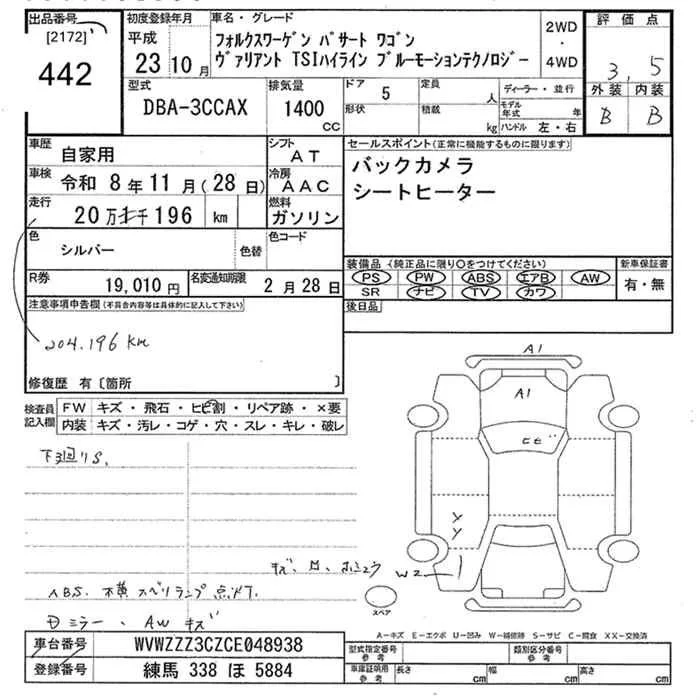 出品番号 初度登録年月 車名・グレード 評価点
[2172] 平成 フォルクスワーゲン パサート ワゴン 2WD
442 23 10月 ヴァリアント TSIハイライン ブルーモーションテクノロジー ・ 4WD 3,5
型式 排気量 ドア 5 定員 人 ディーラー・並行 外装 内装
DBA-3CCAX 1400 CC 形状 積載 kg モデル年式 年 ハンドル 左・右 B B
車歴 自家用 シフト AT セールスポイント(正常に機能するものに限ります)
車検 令和 8年11月(28日) 冷房 AAC バックカメラ
走行 20万 千196 km 燃料 ガソリン シートヒーター
色 シルバー 色替 色コード
装備品 (純正品に限り○をつけてください) 新車保証書
R券 19,010円 名変通知期限 2月28日 PS PW ABS エアB AW 有・無
SR ナビ TV カワ
注意事項申告欄(不具合内容等は具体的に記入して下さい) 後日品
204.196 km
修復歴 有〔箇所 〕
検査員記入欄 FW キズ・飛石・ヒビ割・リペア跡・×要
内装 キズ・汚レ・コゲ・穴・スレ・キレ・破レ
A1
A1
下廻りS.
Y
Y
W2
ABS. 横スベリランプ点灯.
スペア
ミラー、AWキズ
A-キズ E-エクボ U-凹み W-補修跡 S-サビ C-腐食 XX-交換済
車台番号 WVWZZZ3CZCE048938 型式指定番号 参考 類別区分番号 参考
登録番号 練馬 338 ほ 5884 車庫証明用 参考 長さ cm 幅 cm 高さ cm